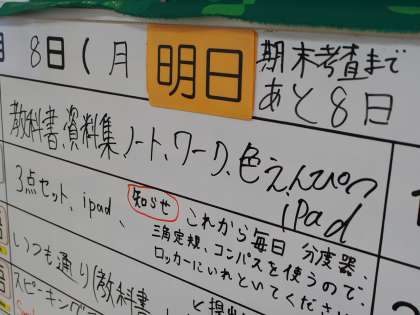 8日(月
明日
期末考査まで
あと8日
教科書、資料集 ノート、ワーク、色えんぴつ
iPad
3点セット、ipad、
知らせ
これから毎日 分度器、
三角定規、コンパスを使うので、
ロッカーにいれといてくださ
いつも通り(教科書
スピーキング
と提出